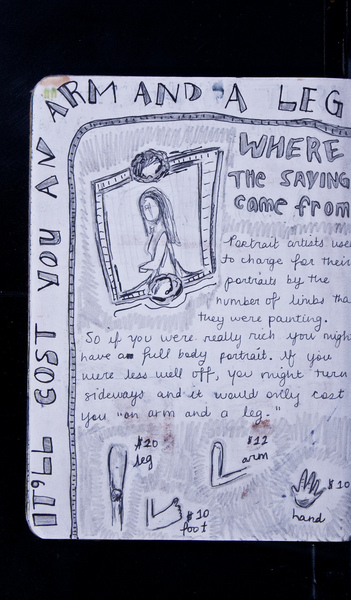 IT'LL COST YOU AN
ARM AND A LEG
WHERE
THE SAYING
came from
Portrait artists use
to charge for their
portraits by the
number of limbs tha
they were painting.
So if you were really rich you migh
have a full body portrait. If you
were less well off, you might turn
sideways and it would only cost
you "an arm and a leg."
$20
leg
$12
arm
$10
foot
$10
hand